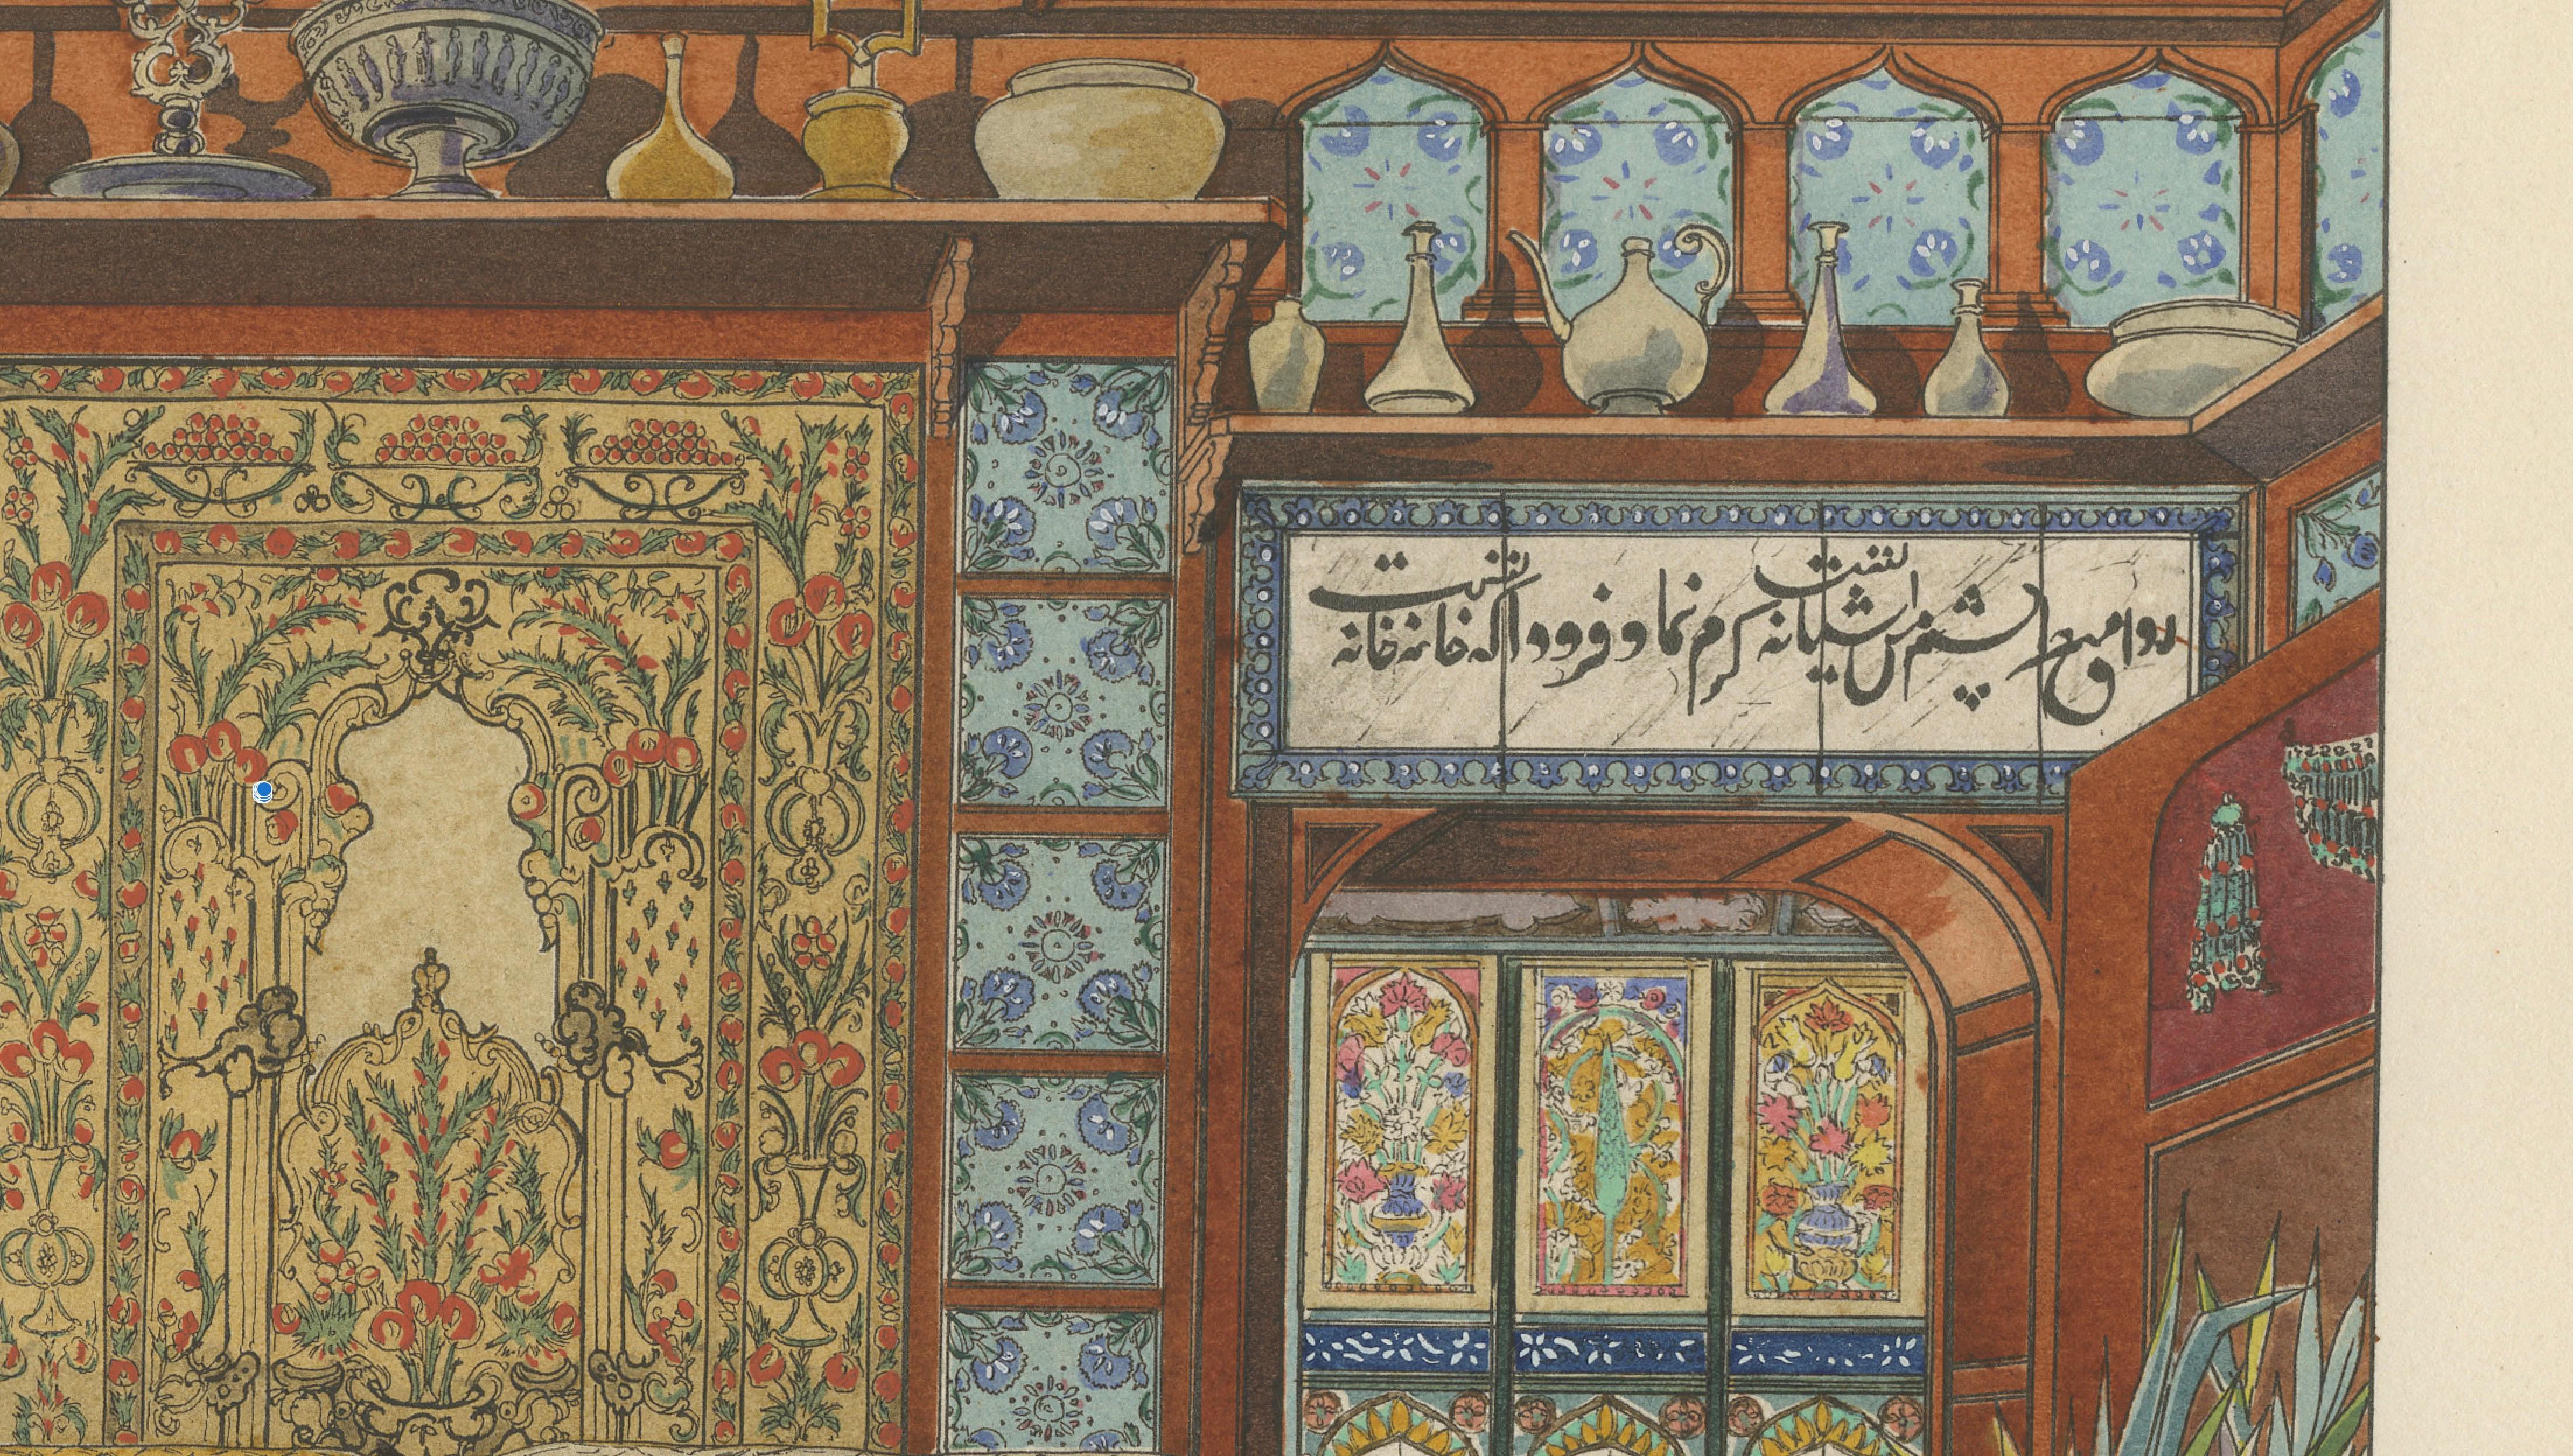 رواق منظر چشم من آشیانه تست
کرم نما و فرود آ که خانه خانه تست